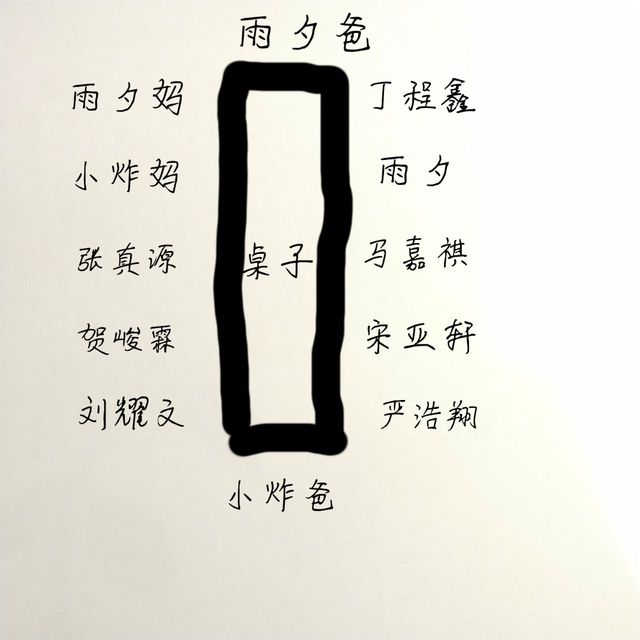 雨夕爸
雨夕妈 丁程鑫
小炸妈 雨夕
张真源 桌子 马嘉祺
贺峻霖 宋亚轩
刘耀文 严浩翔
小炸爸